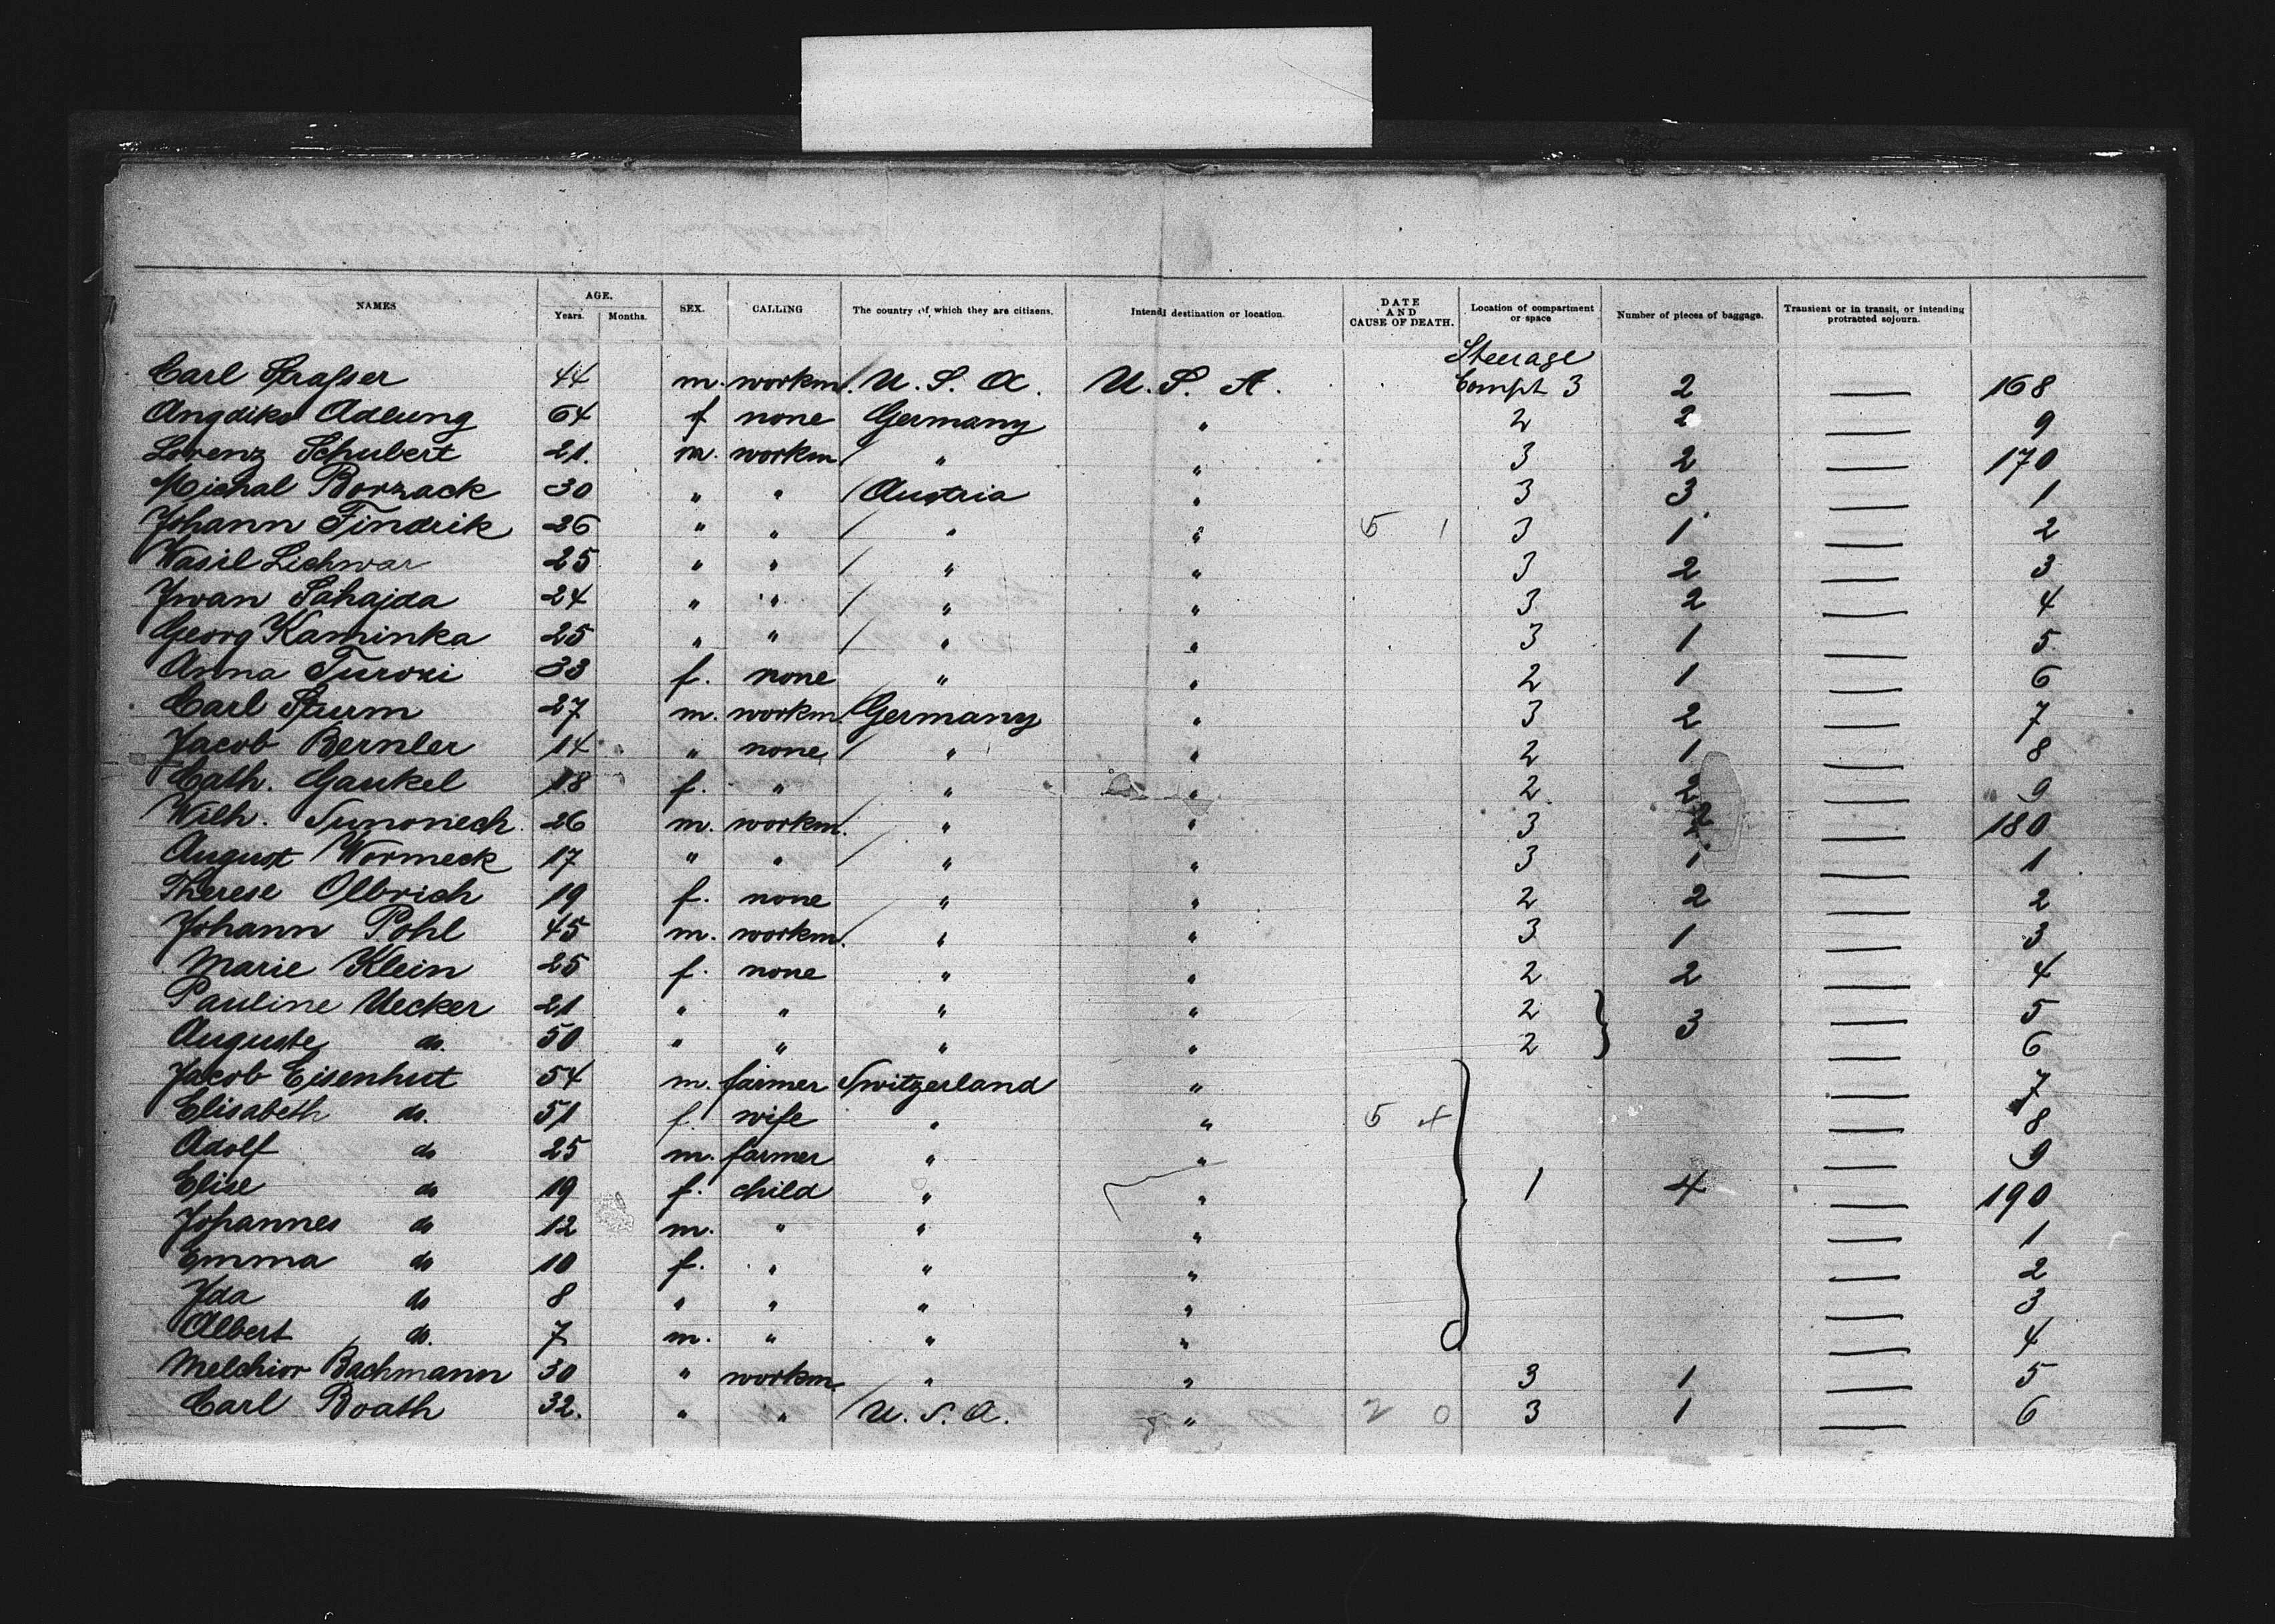 NAMES AGE. Years. Months. SEX. CALLING The country of which they are citizens. Intend destination or location. DATE AND CAUSE OF DEATH. Location of compartment or space Number of pieces of baggage. Transient or in transit, or intending protracted sojourn.
Steerage
Carl Strasser 44 m. workm. U. S. A. U. S. A. Compt 3 2 — 168
Adlung 64 f none Germany " 2 2 — 9
Lorenz Schubert 21. m. workm " " 3 2 — 170
Michal Borzack 30 " " Austria " 3 3 — 1
Johann Findrik 26 " " " " 5 1 3 1 — 2
Wasil Lichwar 25 " " " " 3 2 — 3
Iwan Sahajda 24 " " " " 3 2 — 4
Georg Kaminka 25 " " " " 3 1 — 5
Anna Turoki 33 f. none " " 2 1 — 6
Carl Sturm 27 m. workm. Germany " 3 2 — 7
Jacob Bernler 14 " none " " 2 1 — 8
Cath. Gaukel 18 f. " " " 2 2 — 9
Wilh. 26 m. workm. " " 3 2 — 180
August Wormeck 17 " " " " 3 1 — 1
Therese Olbrich 19 f. none " " 2 2 — 2
Johann Pohl 45 m. workm. " " 3 1 — 3
Marie Klein 25 f. none " " 2 2 — 4
Pauline Uecker 21 " " " " 2 3 — 5
Auguste do. 50 " " " " 2 — 6
Jacob Eisenhut 54 m. farmer Switzerland " — 7
Elisabeth do. 51 f. wife " " 5 4 — 8
Adolf do 25 m. farmer " " — 9
Elise do 19 f. child " " 1 4 — 190
Johannes do 12 m. " " " — 1
Emma do 10 f. " " " — 2
Ida do 8 " " " " — 3
Albert do. 7 m. " " " — 4
Melchior Bachmann 30 " workm " " 3 1 — 5
Carl Boath 32. " " U. S. A. " 2 0 3 1 — 6